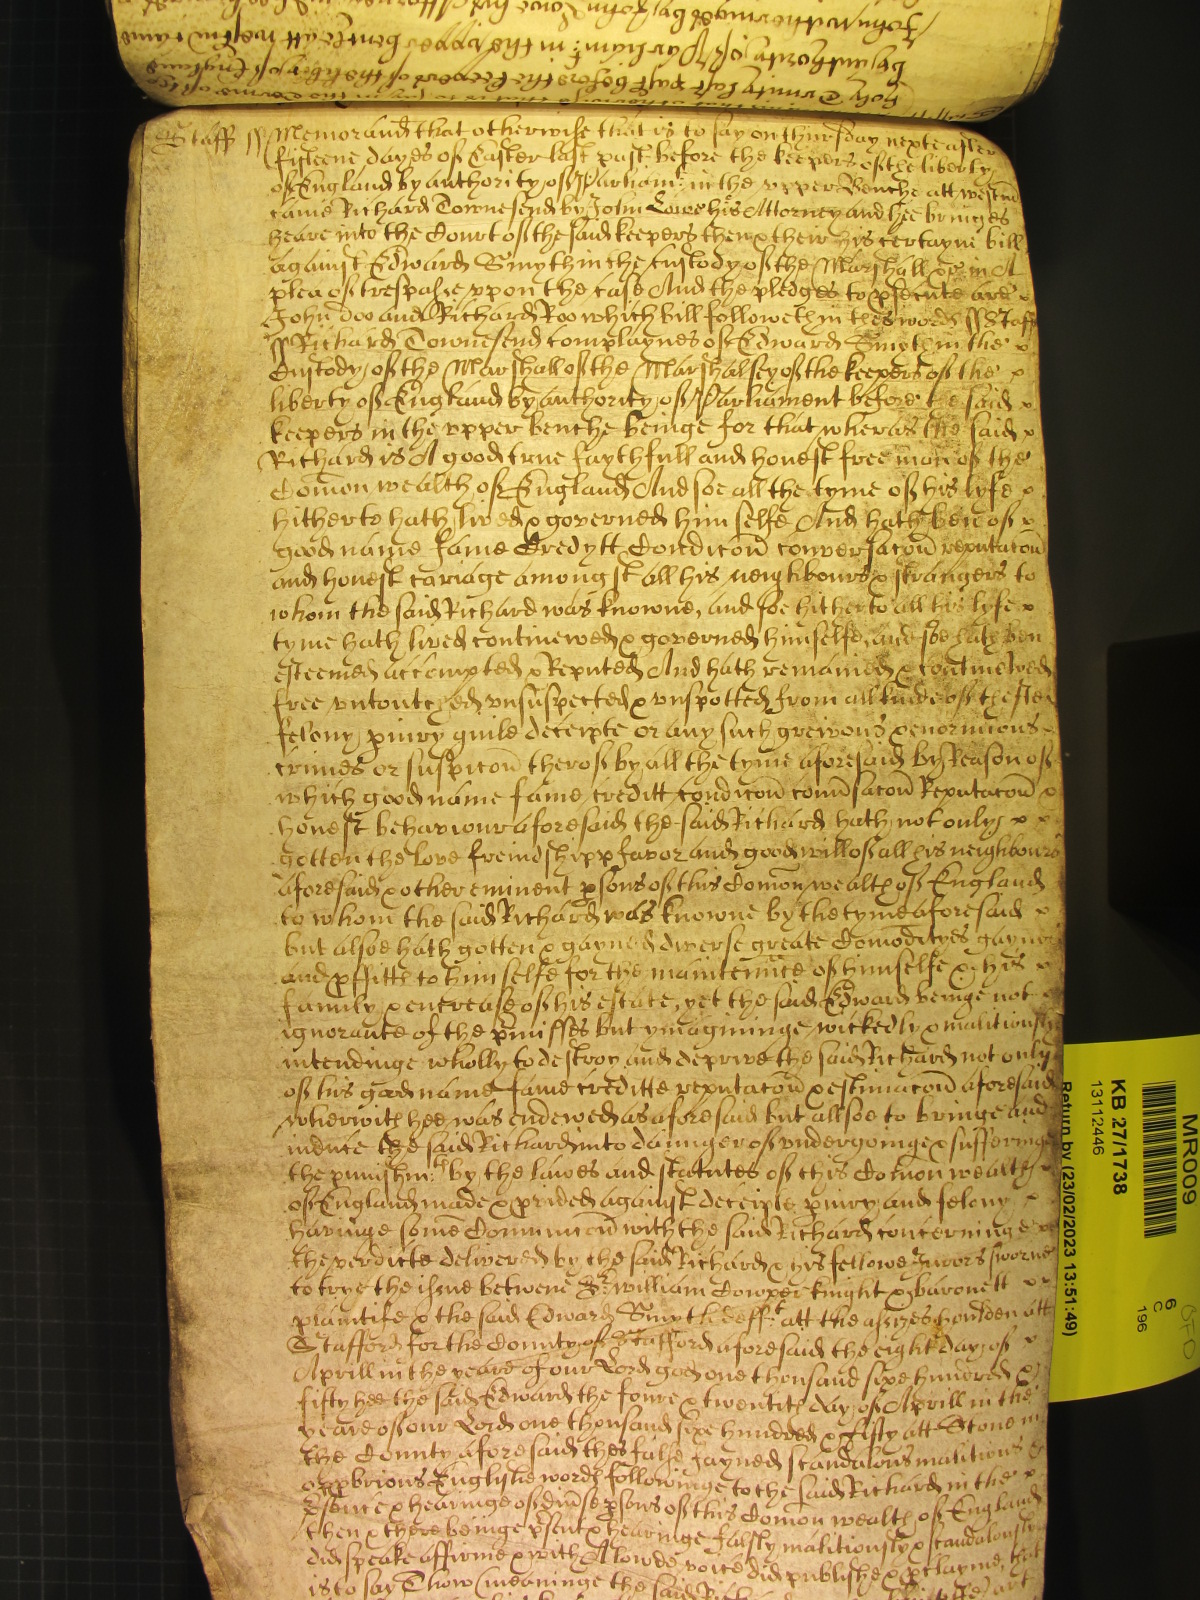 Staff ss Memorand that otherwise that is to say on Thursday nexte after
fifteene dayes of Easter last past before the keepers of the liberty
of England by authority of Parliamt in the upper Benche att Westm
came Richard Townesend by John Lowe his Attorney and hee bringes
heare into the Court of the said keepers then & their his certayne bill
against Edward Smyth in the custody of the Marshall &c in A
plea of trespasse vpon the case And the pledges to psecute are x
John doo and Richard Roo which bill followeth in thes words ss Staff
ss Richard Townesend complaynes of Edward Smyth in the x
Custody of the Marshall of the Marshalsey of the keepers of the x
liberty of England by authority of Parliament before the said x
keepers in the vpper benche beinge for that wheras the said x
Richard is A good true faythfull and honest free man of the
Comon wealth of England And soe all the tyme of his lyfe x
hitherto hath lived & governed him selfe And hath bene of x
good name fame Credytt Condicon conversacon reputacon
and honest cariage amongst all his neighbours & strangers to
whom the said Richard was knowne, and soe hitherto all his lyfe x
tyme hath lived continewed & governed himselfe, and soe hath ben
esteemed accempted & Reputed And hath remained & continewed
free vntoutched vnsuspected & vnspotted from all kinde of thefte
felony piury guile deceipte or any such greivous & enormious
crimes or suspicon therof by all the tyme aforesaid By Reason of
which good name fame creditt condicon convsacon Reputacon x
honest behaviour aforesaid the said Richard hath not only x x
gotten the love freindshipp favor and good will of all his neighbours
aforesaid & other eminent psons of this Comon wealth of England
to whom the said Richard was knowne by the tyme aforesaid x
but alsoe hath gotten & gayned diverse greate Comodityes gaynes
and pfitts to him selfe for the maintennce of himselfe & his x
family & encrease of his estate, yet the said Edward beinge not
ignorante of the pmisses but ymagininge wickedly & malitiously
intendinge wholly to destroy and deprive the said Richard not only
of his good name fame creditte reputacon & estimacon aforesaid
wherwith hee was endewed as aforesaid but allsoe to bringe and
induce the said Richard into daunger of undergoinge & sufferinge
the punishmt by the lawes and statutes of this Comon wealth
of England made & pvided against deceipte piury and felony x
havinge some Communicon with the said Richard concerninge
the verdicte delivered by the said Richard & his fellowe Jurors sworne
to trye the issue betwene Sr William Cowper knight & baronett
plaintife & the said Edward Smyth defft att the assizes houlden att
Stafford for the County of Stafford aforesaid the eight day of x
Aprill in the yeare of our Lord god one thousand sixe hundred &
fifty hee the said Edward the foure & twentith day of Aprill in the
yeare of our Lord one thousand sixe hundred & fifty att Stone in
the County aforesaid thes false fayned scandalous malitious &
opprbrious Englishe words followinge to the said Richard in the x
psence & hearinge of divse psons of this Comon wealth of England
then & there beinge psent & hearinge falsly malitiously & scandalously
did speake affirme & with A lowde voice did publishe & pclayme, that
is to say Thow (meaninge the said Richard
KB 27/1738
13112446
Return by (23/02/2023 13:51:49)
MR009
6
C
196